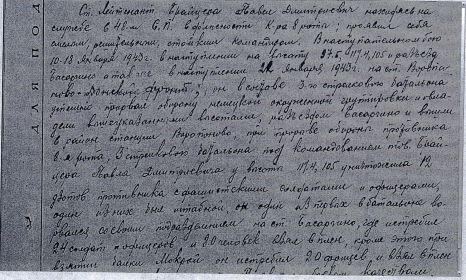 Ст. Лейтенант Павел Дмитриевич находясь на
службе в 48 м С.П. в должности К-ра 8 роты, проявил себя
смелым, решительным, стойким командиром. В наступательном бою
10-13 января 1943г. в наступлении на высоту 97.5 117,4, 105 и разъезд
Басаргино а так же в наступлении 22 января 1943г. на ст. Воропо-
ново - Донской фронт, он в составе 3-го стрелкового батальона
прорвал оборону немецкой окруженной группировки и овла-
дели вышеуказанными высотами, разъездом Басаргино и вошли
в район станции Воропоново, при прорыве обороны противника
8-я рота, 3 стрелкового батальона под командованием тов.
Павла Дмитриевича у высоты 117,4, 105 уничтожила 12
дзотов противника с фашистскими солдатами и офицерами,
один из них был штабной, он один из первых в батальоне во-
рвался со своим подразделением на ст. Басаргино, где истребил
24 солдат и офицеров и 80 человек взял в плен, кроме этого при
взятии балки Мокрой он истребил 20 фрицев и взял в плен
ДЛЯ ПОД